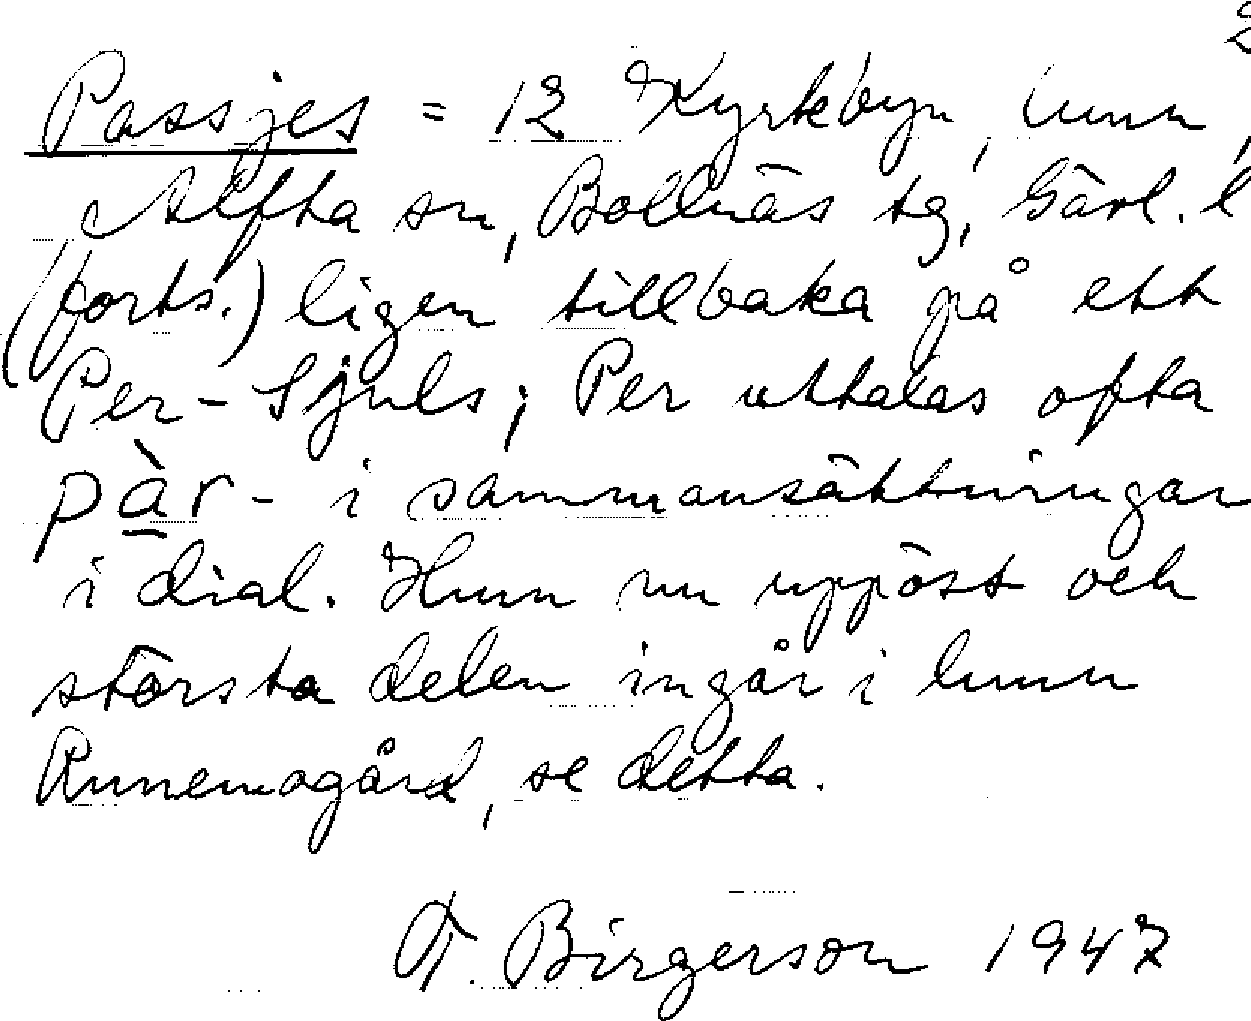 2
Passjes = 12 Kyrkbyn, hmn,
Alfta sn, Bollnäs tg, Gävl. l
(forts.) ligen tillbaka på ett
Per-Sjuls; Per uttalas ofta
pàr- i sammansättningar
i dial. Hmn nu uppöst och
största delen ingår i hmn
Runemogård, se detta.
T. Birgerson 1947